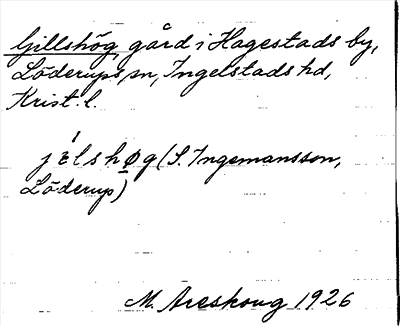 Gillshög, gård i Hagestads by,
Löderups sn, Ingelstads hd,
Krist. l.
jɛ́lshø̲g (S. Ingemansson,
Löderup)
M. Areskoug 1926